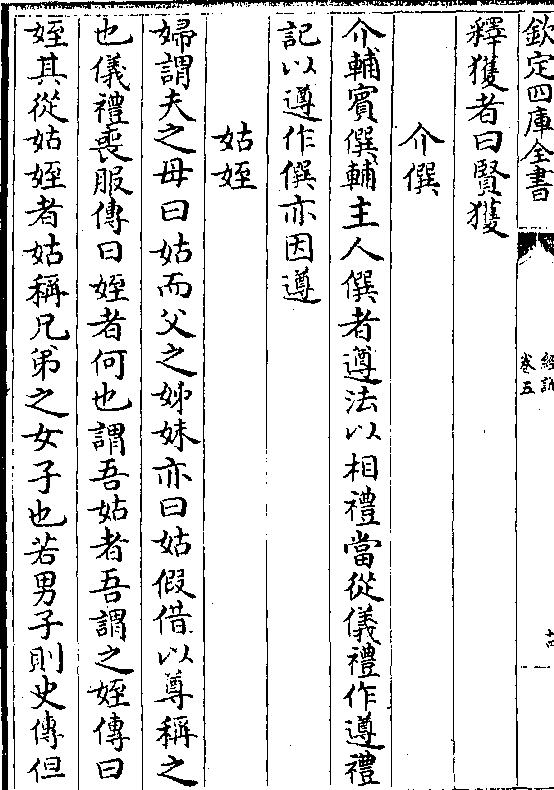 欽定四庫全書
卷五
釋獲者曰賢獲
介僎
介輔賓僎輔主人僎者遵法以相禮當從儀禮作遵禮
記以遵作僎亦因遵
姑姪
婦謂夫之母曰姑而父之姊妹亦曰姑假借以尊稱之
也儀禮喪服傳曰姪者何也謂吾姑者吾謂之姪傳曰
姪其從姑姪者姑稱兄弟之女子也若男子則史傳但